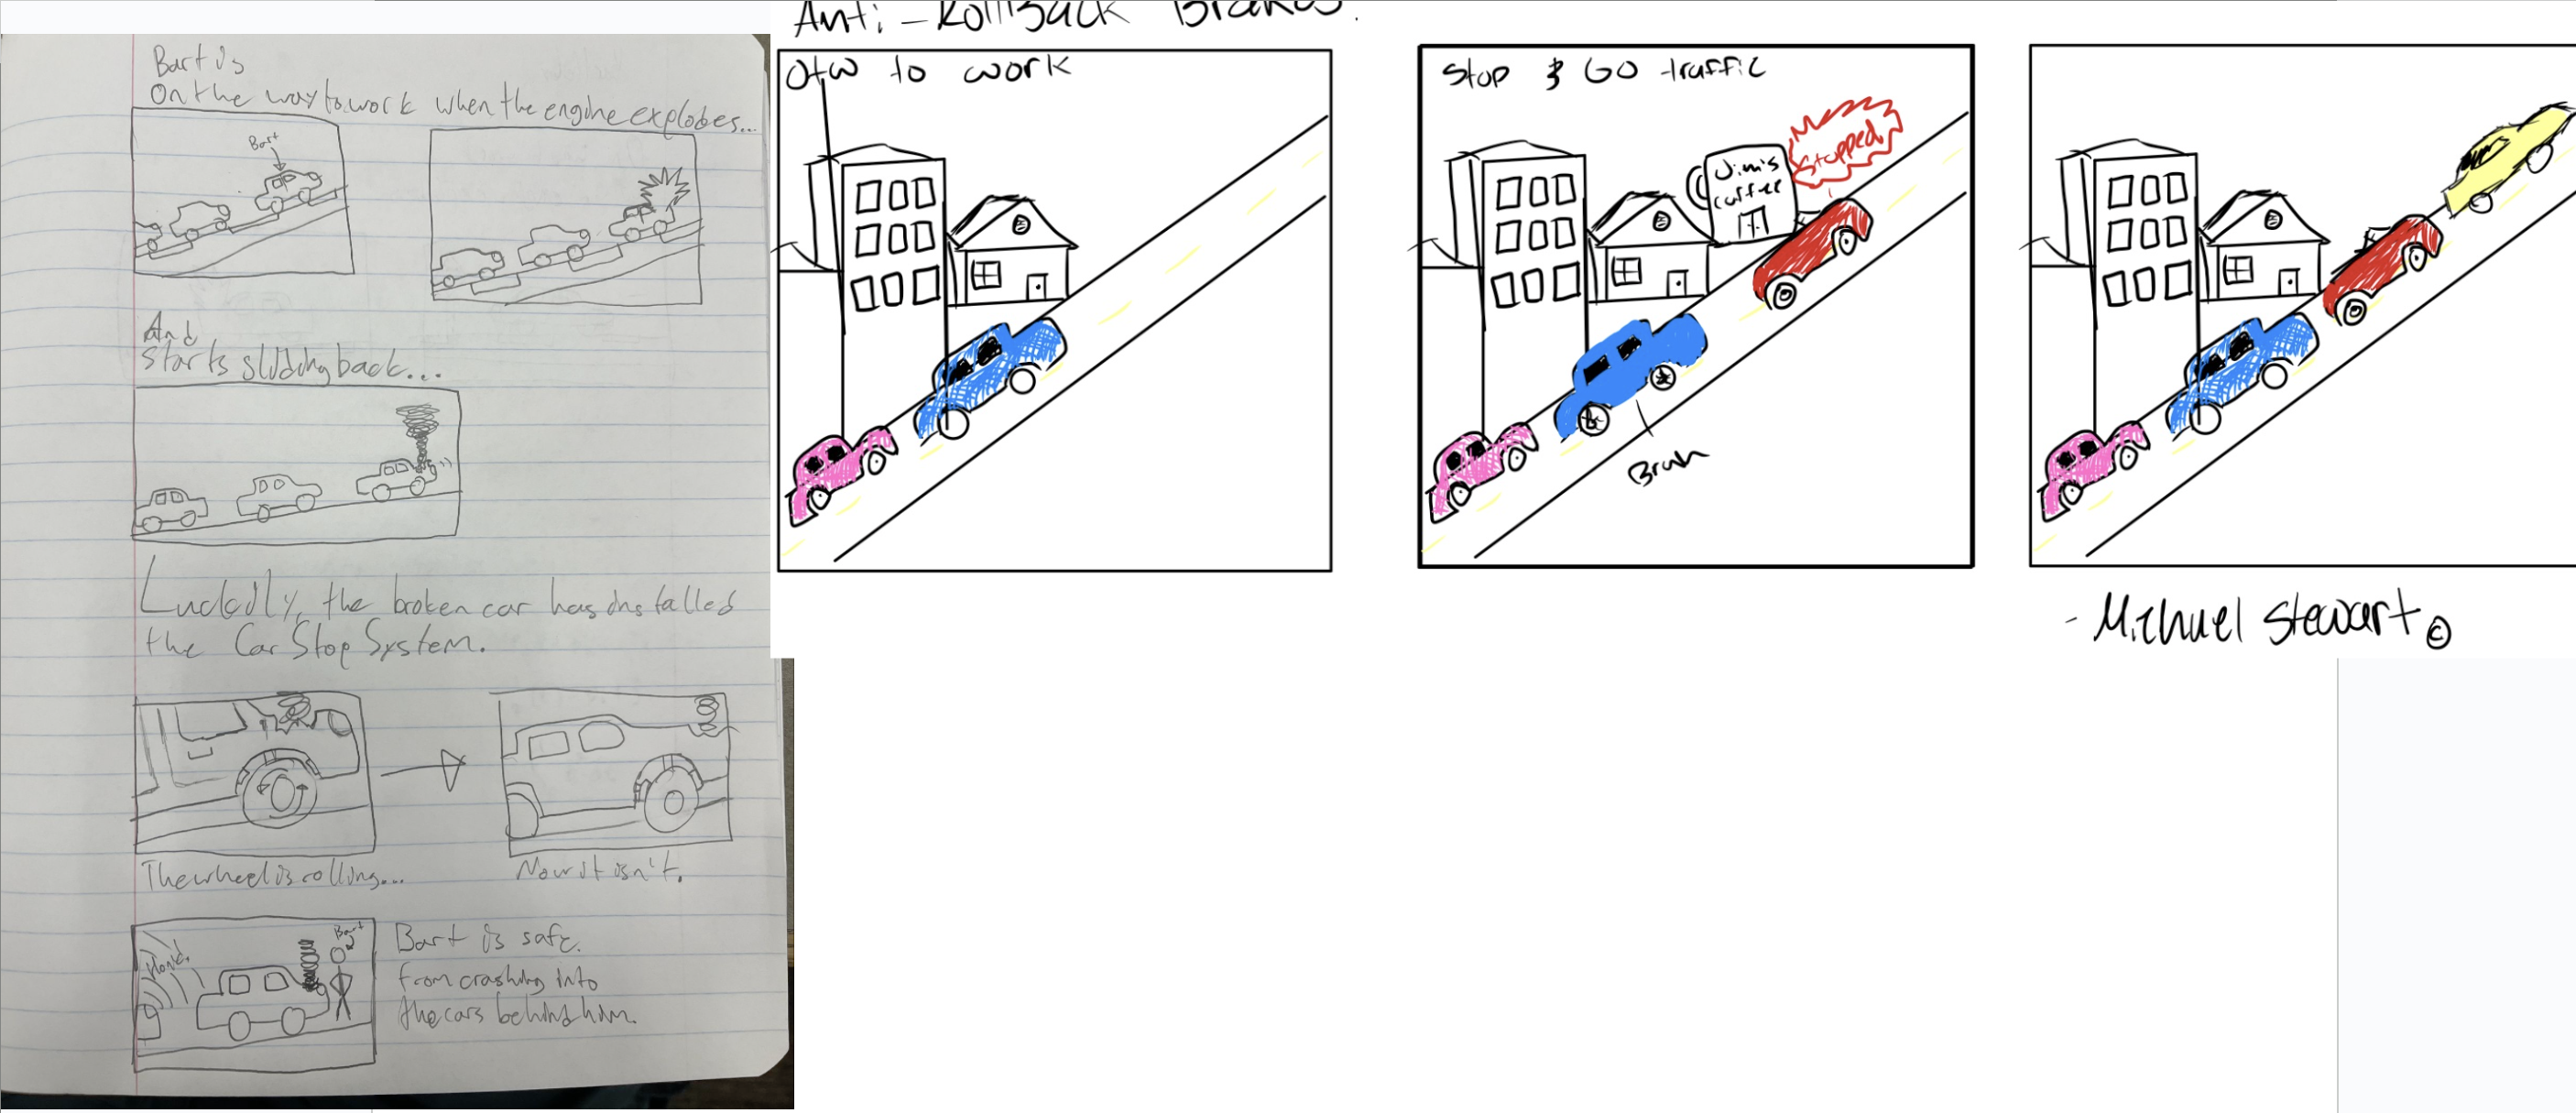 Bart is
On the way to work when the engine explodes...
Bart
And
starts sliding back...
Luckily, the broken car has installed
the Car Stop System.
The wheel is rolling...
Now it isn't.
Honk
Bart
Bart is safe.
from crashing into
the cars behind him.
Anti-Rollback Brakes.
Otw to work
Stop & GO traffic
Jim's
coffee
Stopped
- Michael Stewart ©